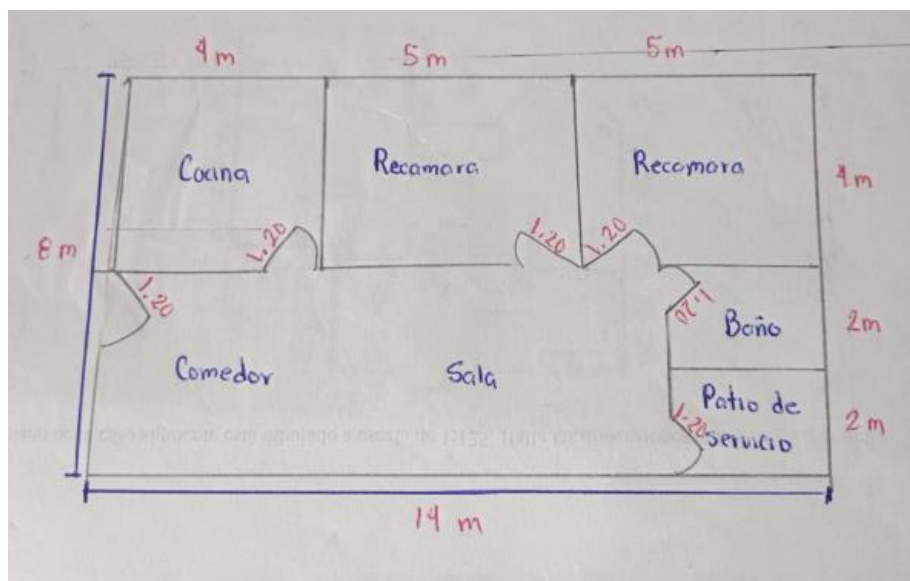 4 m
5 m
5 m
Cocina
Recamara
Recamara
4 m
8 m
1.20
1.20
1.20
1.20
1.20
Baño
2m
Comedor
Sala
Patio de
servicio
1.20
2 m
14 m